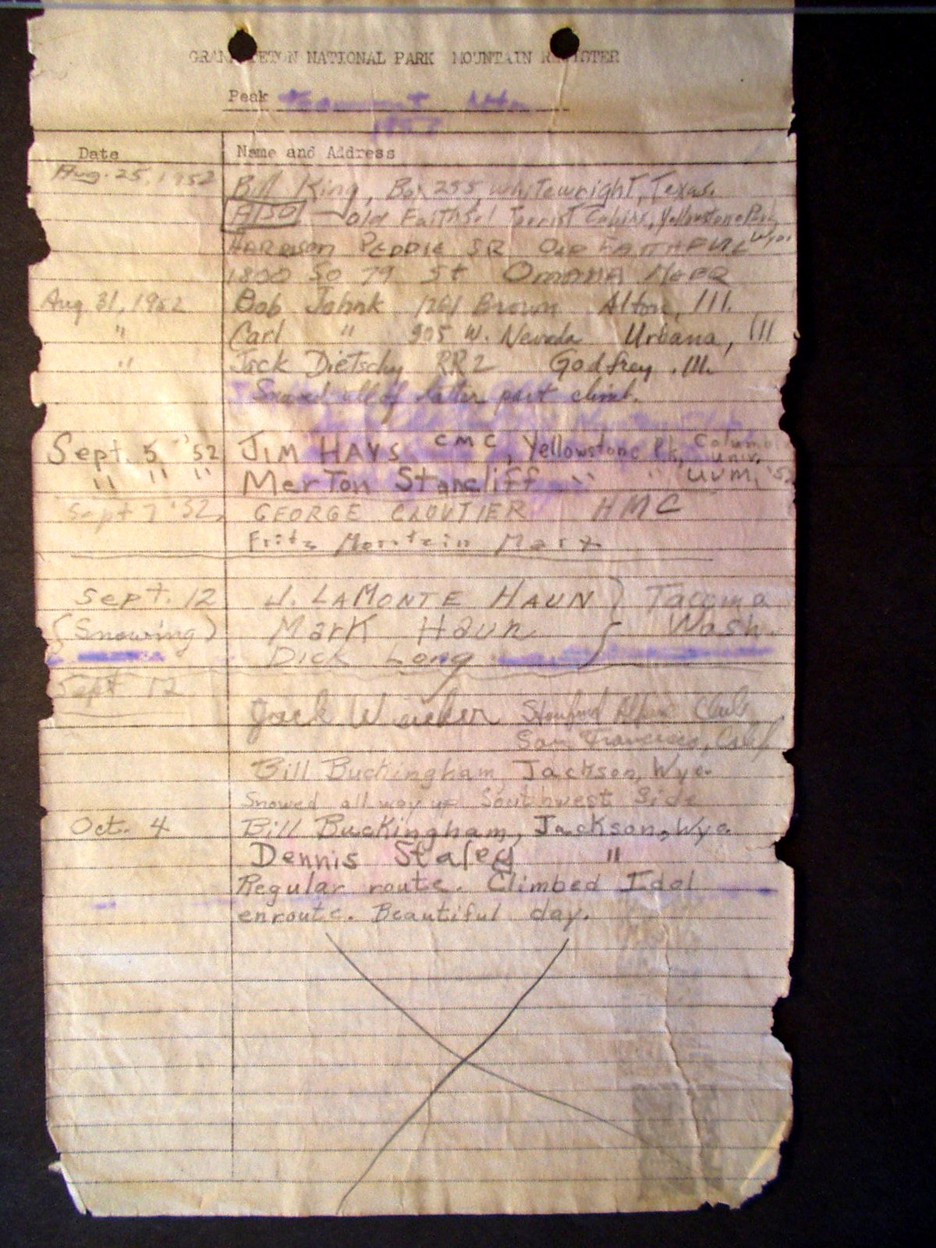 GRAND TETON NATIONAL PARK MOUNTAIN REGISTER
Peak
1952
Date Name and Address
Aug. 25, 1952 Bill King, Box 255 Whitewright, Texas.
ALSO — Old Faithful Tourist Cabins, Yellowstone Park, Wyo.
HARRISON PEDDIE SR OLD FAITHFUL
1800 SO 79 St OMAHA NEBR
Aug 31, 1952 Bob Johnk 1701 Brown Alton, Ill.
" Carl " 905 W. Nevada Urbana, Ill
" Jack Dietschy RR2 Godfrey Ill.
Snowed all of latter part climb.
Sept. 5 '52 JIM HAYS CMC, Yellowstone Pk, Columbia Univ.
" " " Merton Stancliff " " UVM, '52
Sept 7 '52 GEORGE CLOUTIER HMC
Fritz
Sept. 12 J. LAMONTE HAUN } Tacoma
(Snowing) Mark Haun Wash.
Dick Long
Sept 12
Jack Stanford Alpine Club
San Francisco, Calif
Bill Buckingham, Jackson, Wyo.
Snowed all way up Southwest Side
Oct. 4 Bill Buckingham, Jackson, Wyo.
Dennis Staley "
Regular route. Climbed Idol
enroute. Beautiful day.